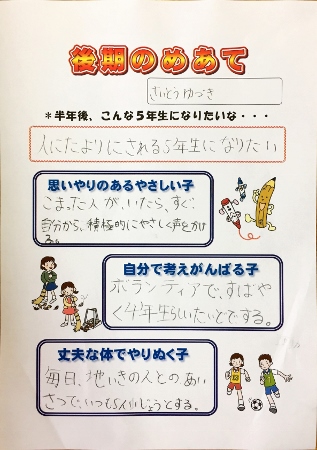 後期のめあて
さいとう ゆづき
*半年後、こんな5年生になりたいな・・・
人にたよりにされる5年生になりたい
思いやりのあるやさしい子
こまった人が、いたら、すぐ、
自分から、積極的にやさしく声をかけ
る。
自分で考えがんばる子
ボランティアで、すばや
く4年生らしいたいどでする。
丈夫な体でやりぬく子
毎日、地いきの人とのあい
さつで、いつも5人いじょうとする。